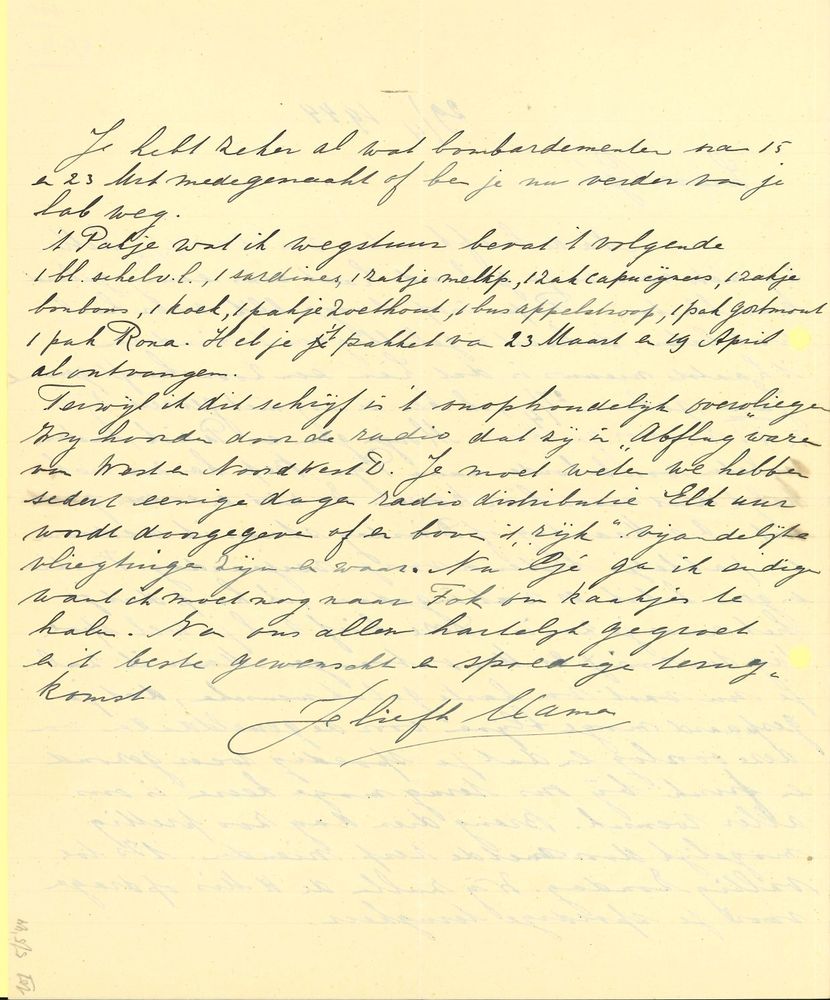 Je hebt zeker al wat bombardementen na 15
en 23 Mrt medegemaakt of ben je nu verder van je
lab weg.
't Pakje wat ik wegstuur bevat 't volgende
1 bl. schelv. l., 1 sardines, 1 zakje melkp., 1 zak capucijners, 1 zakje
bonbons, 1 koek, 1 pakje Zoethout, 1 bus appelstroop, 1 pak gortmout
1 pak Rona. Heb je 't pakket van 23 Maart en 19 April
al ontvangen.
Terwijl ik dit schrijf is 't onophoudelijk overvliegen
Wij hoorde door de radio dat zij in "Abflug" ware
van West en NoordWest D. Je moet weten we hebben
sedert eenige dagen radio distributie Elk uur
wordt doorgegeven of er boven 't "rijk" vijandelijke
vliegtuigen zijn en waar. Nu ga ik eindigen
want ik moet nog naar Fok om kaakjes te
halen. Van ons allen hartelijk gegroet
en 't beste gewenscht en spoedige terug-
komst
Je liefh Mama